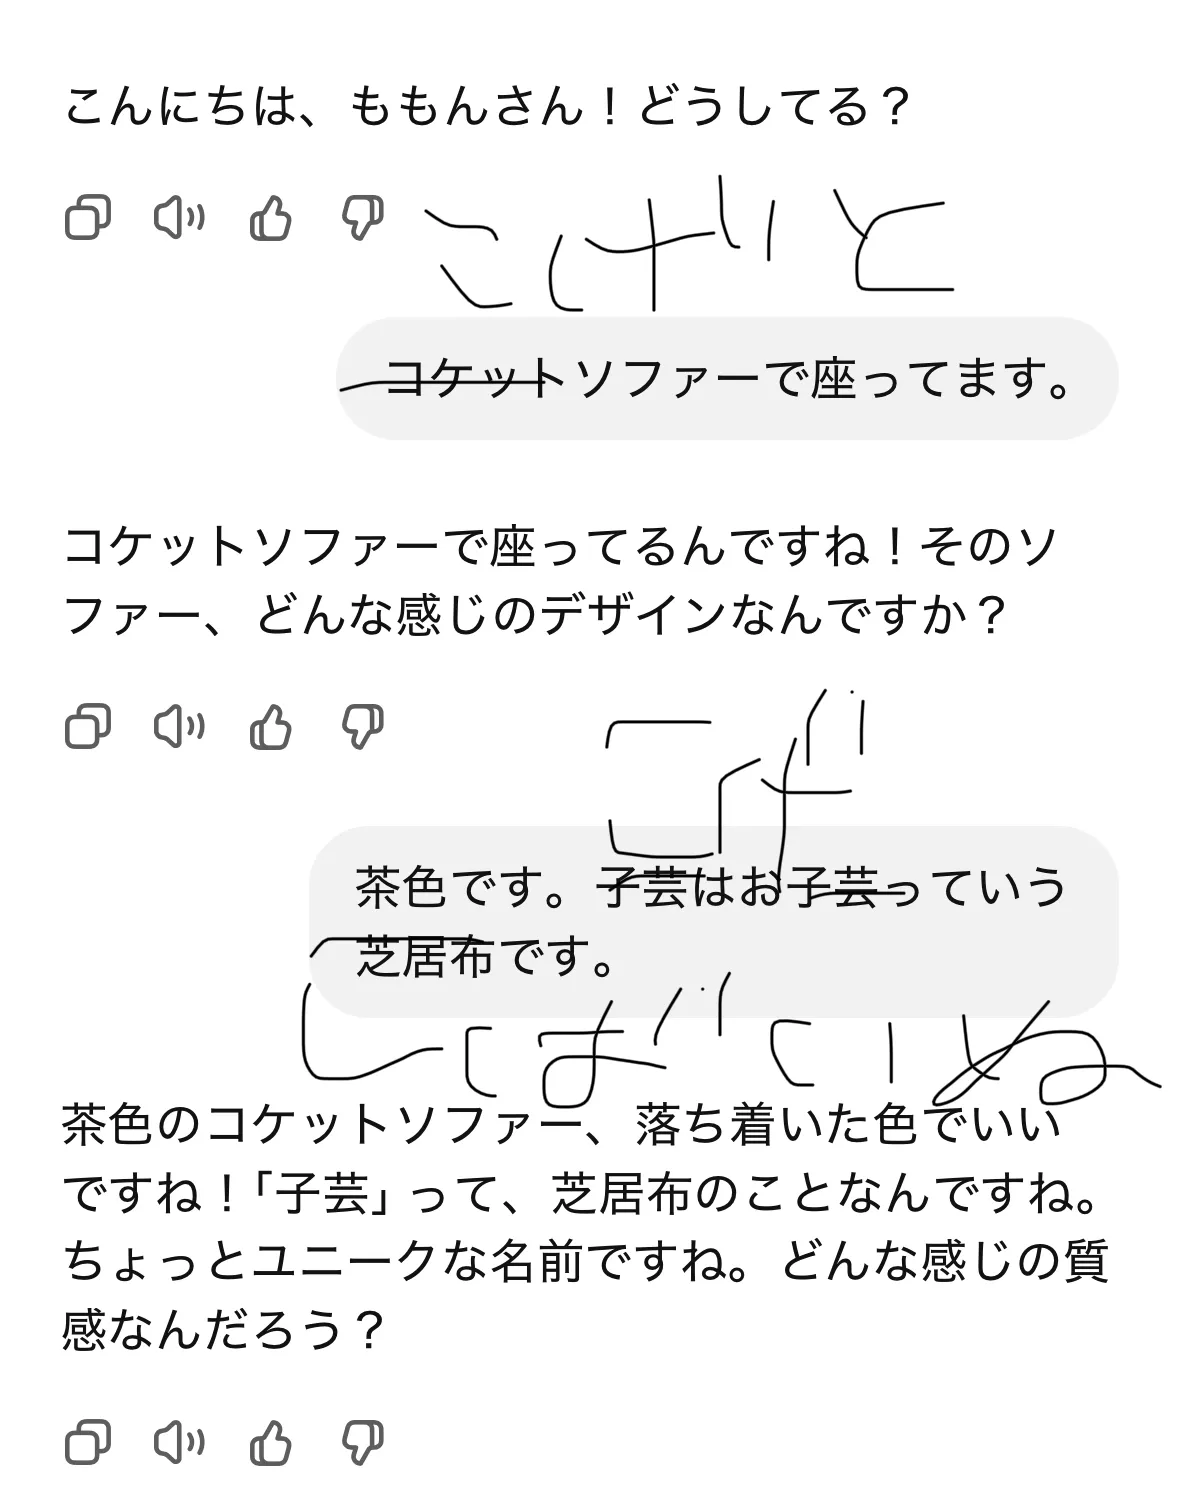 こんにちは、ももんさん！どうしてる？
こげと
コケットソファーで座ってます。
コケットソファーで座ってるんですね！そのソ
ファー、どんな感じのデザインなんですか？
こげ
茶色です。子芸はお子芸っていう
芝居布です。
しばいぬ
茶色のコケットソファー、落ち着いた色でいい
ですね！「子芸」って、芝居布のことなんですね。
ちょっとユニークな名前ですね。どんな感じの質
感なんだろう？